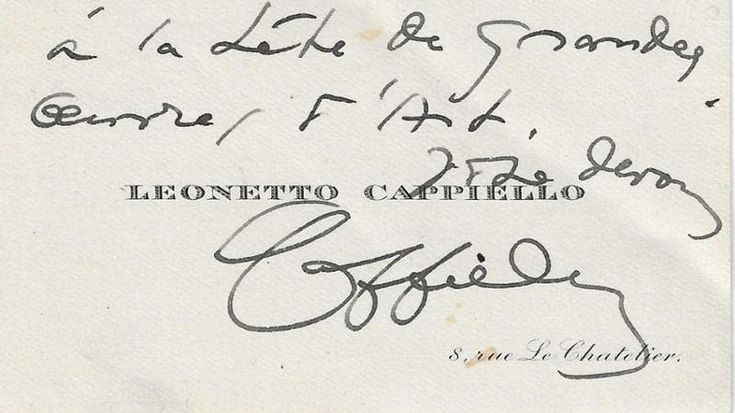 à la tête de grandes
Œuvres d'Art.
Votre dévoué
LEONETTO CAPPIELLO
Cappiello
8, rue Le Chatelier.